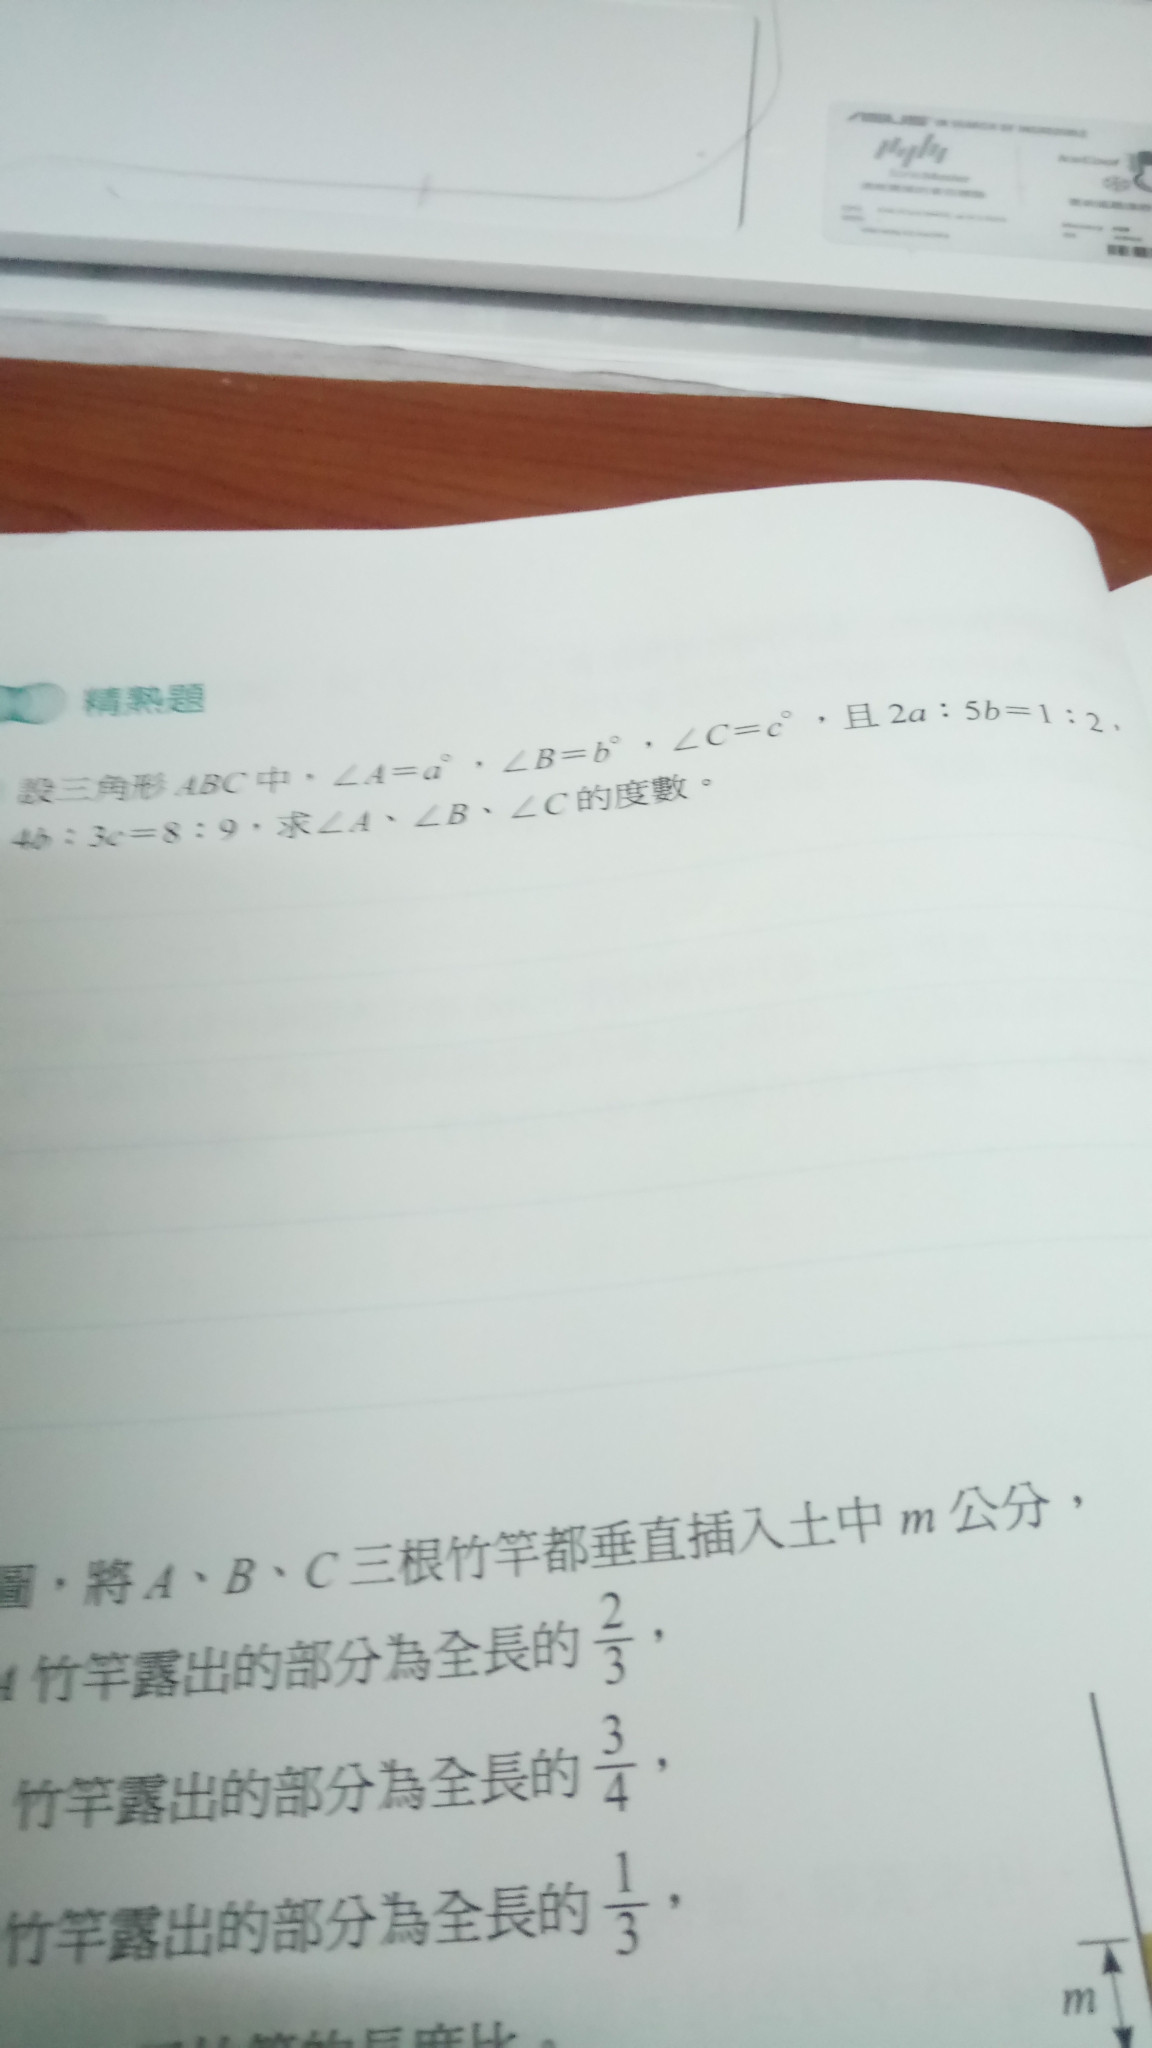 精熟題
設三角形ABC中，∠A=a°，∠B=b°，∠C=c°，且2a：5b=1：2、
4b：3c=8：9，求∠A、∠B、∠C的度數。
圖，將A、B、C三根竹竿都垂直插入土中m公分，
A竹竿露出的部分為全長的2/3，
竹竿露出的部分為全長的3/4，
竹竿露出的部分為全長的1/3，
的長度比。
m